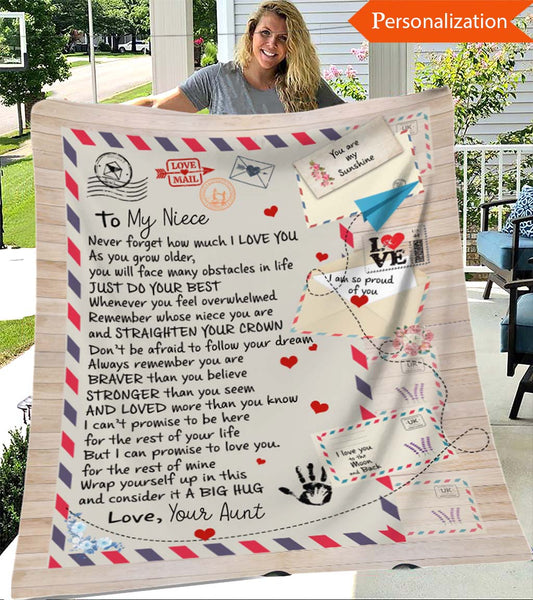 Personalization
LOVE
MAIL
You are
my
Sunshine
UK
To My Niece
Never forget how much I LOVE YOU
As you grow older,
you will face many obstacles in life
JUST DO YOUR BEST
Whenever you feel overwhelmed
Remember whose niece you are
and STRAIGHTEN YOUR CROWN
Don't be afraid to follow your dream
Always remember you are
BRAVER than you believe
STRONGER than you seem
AND LOVED more than you know
I can't promise to be here
for the rest of your life
But I can promise to love you.
for the rest of mine
Wrap yourself up in this
and consider it A BIG HUG
Love, Your Aunt
LOVE
I am so proud
of you
UK
UK
I love you
to the
Moon
and Back
UK